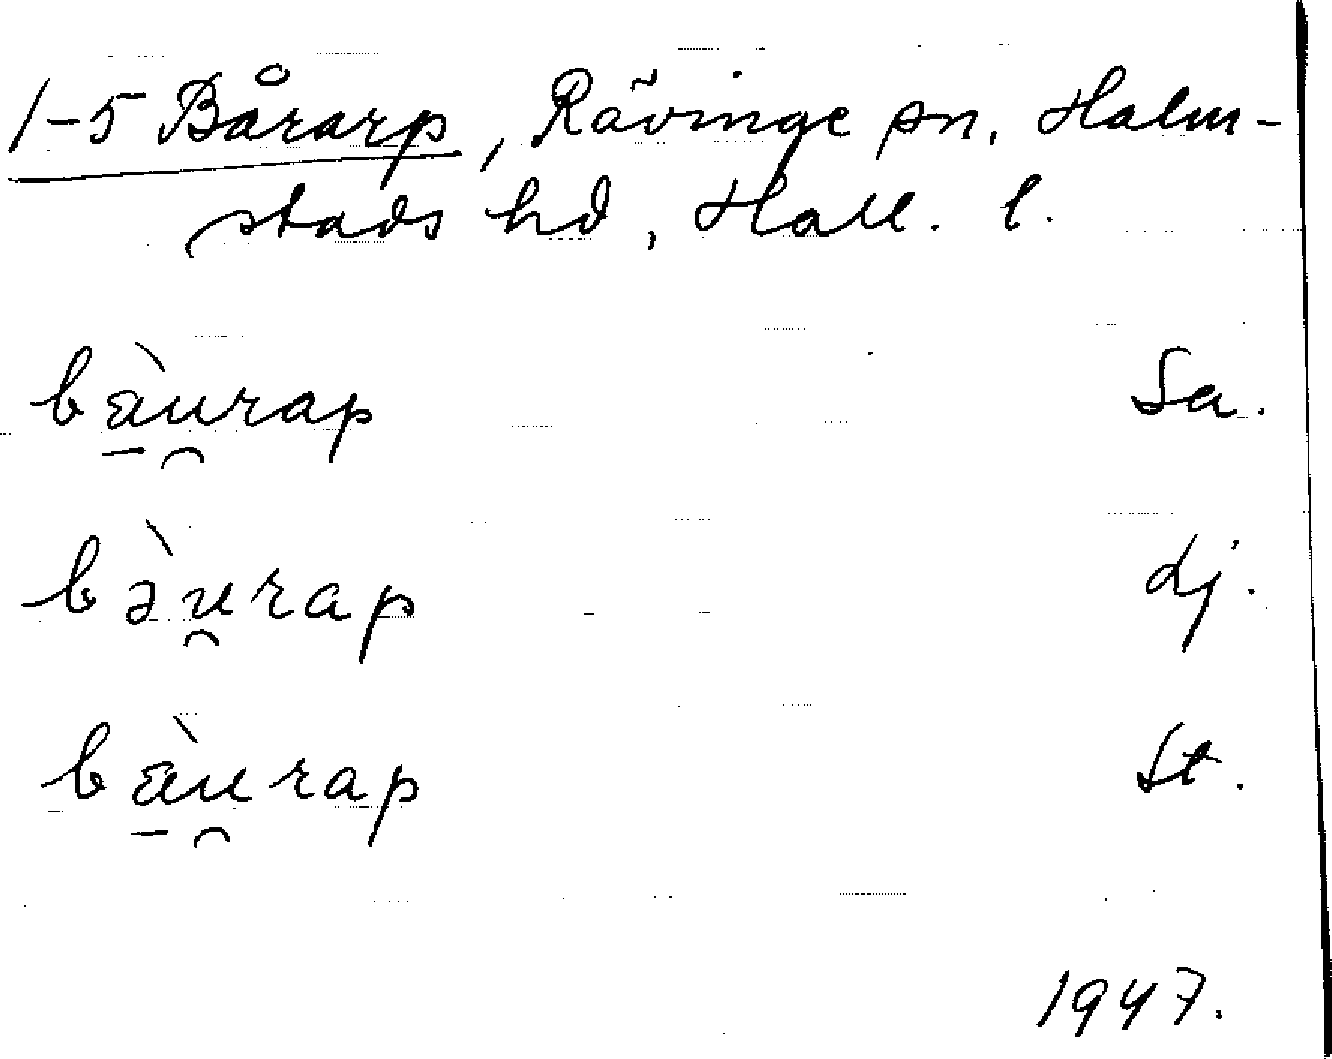 1-5 Bårarp, Rävinge sn, Halm-
stads hd, Hall. l.
bä̱̀u̯rap Sa.
bə̀u̯rap dj.
bä̱̀u̯rap St.
1947.